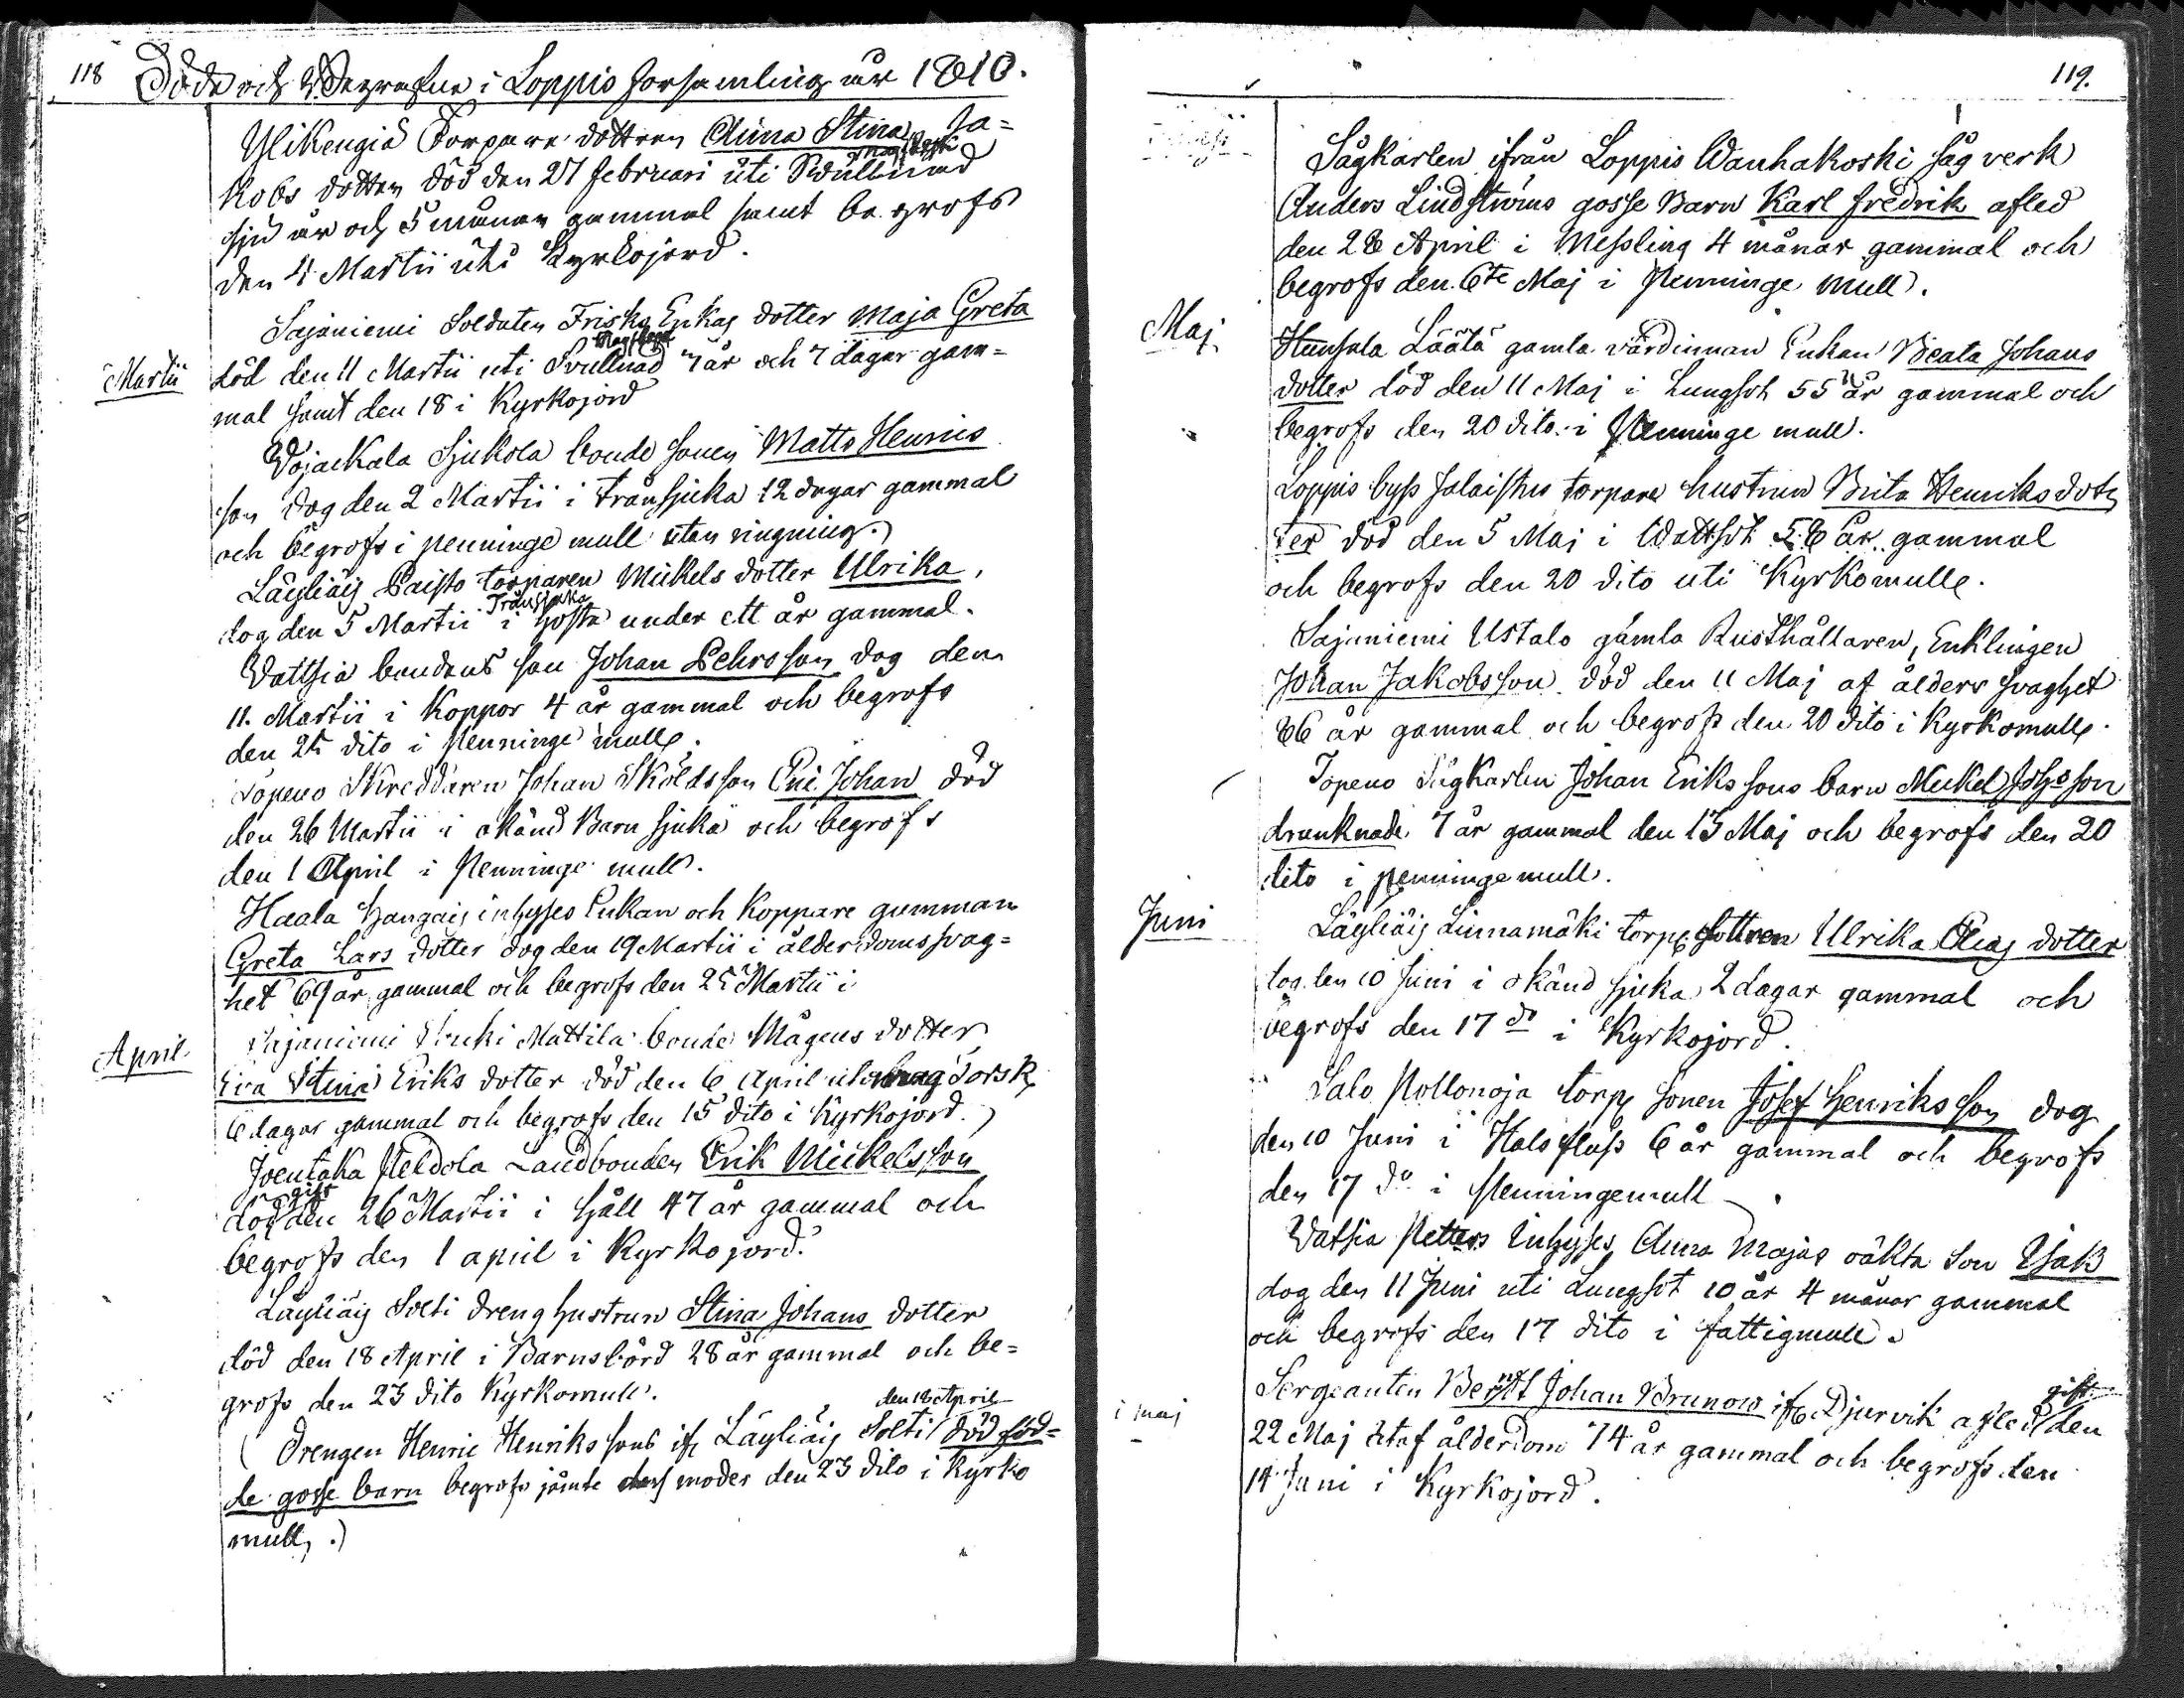 118 Döde och Begrafne i Loppis Forsamling år 1810.
Ylikengiä Torpare dottren Anna Stina Ja=
Magsvert
kobs dotter död den 27 februari uti Svullnad
sju år och 5 månar gammal samt begrofs
den 4 Martii uti Kyrkojord.
Sajäniemi Soldaten Frisks Enkas dotter Maja Greta
Martii död den 11 Martii uti Svullnad 7 år och 7 dagar gam=
mal samt den 18 i Kyrkojord
Wojackala Sjukola bonde sonen Matts Henrics
son dog den 2 Martii i trånsjuka 12 dagar gammal
och begrofs i penninge mull utan ringning.
Läyliäis Paisto torparen Mickels dotter Ulrika,
Trånsjuka
dog den 5 Martii i hosta under ett år gammal.
Wattsia bondens son Johan Pehrsson dog den
11. Martii i Koppor 4 år gammal och begrofs
den 25 dito i penninge mull.
Topeno Skreddaren Johan Skölds son Eric Johan död
den 26 Martii i okänd Barn sjuka och begrofs
den 1 April i Penninge mull.
Haala Hangais inhyses Enkan och Koppare gumman
Greta Lars dotter dog den 19 Martii i ålderdomssvag=
het 69 år gammal och begrofs den 25 Martii i
April Sajaniemi Mattila bonde Mågens dotter
Eva Stina Eriks dotter död den 6 April torsk
6 dagar gammal och begrofs den 15 dito i Kyrkojord.
Joentaka Peldola Landbonden Erik Mickelsson
gift
död den 26 Martii i håll 47 år gammal och
begrofs den 1 april i Kyrkojord.
Läyliäis Solti dreng hustrun Stina Johans dotter
död den 18 April i Barnsbörd 28 år gammal och be=
grofs den 23 dito Kyrkomull.
den 18 April
(Drengen Henric Henrikssons ifr Läyliäis Solti död föd=
de gosse barn begrofs jämte des moder den 23 dito i Kyrko
mull.)
119.
Sågkarlen ifrån Loppis Wanhakoski såg verk
Anders Lindströms gosse Barn Karl Fredrik afled
den 28 April i Messling 4 månar gammal och
begrofs den 6te Maj i Penninge mull.
Maj Hunsala Läätä gamla värdinnan Enkan Beata Johans
dotter död den 11 Maj i Lungsot 55 år gammal och
begrofs den 20 dito i Penninge mull.
Loppis byss Jalaistus torpare hustrun Brita Henriksdot
ter död den 5 Maj i Wattsot 56 år gammal
och begrofs den 20 dito uti Kyrkomull.
Sajaniemi Ustalo gamla Rusthållaren, Enklingen
Johan Jakobsson död den 11 Maj af ålders svaghet
66 år gammal och begrofs den 20 dito i Kyrkomull.
Topeno Sågkarlen Johan Erikssons barn Mickel Johsson
drunknade 7 år gammal den 13 Maj och begrofs den 20
dito i penninge mull.
Juni Läyliäis Linnamäki torp dottren Ulrika Elias dotter
dog den 10 Juni i okänd sjuka 2 dagar gammal och
begrofs den 17 do i Kyrkojord.
Salo Pollonoja torp sonen Josef Henriksson dog
den 10 Juni i Halsfluss 6 år gammal och begrofs
den 17 do i Penningemull.
Watsia Petters Inhyses Anna Majas oäkta son Isak
dog den 11 Juni uti Lungsot 10 år 4 månar gammal
och begrofs den 17 dito i fattigmull.
Sergeanten Berndt Johan Brunow ifr Djurvik afled den
gift
i maj 22 Maj utaf ålderdom 74 år gammal och begrofs den
14 Juni i Kyrkojord.